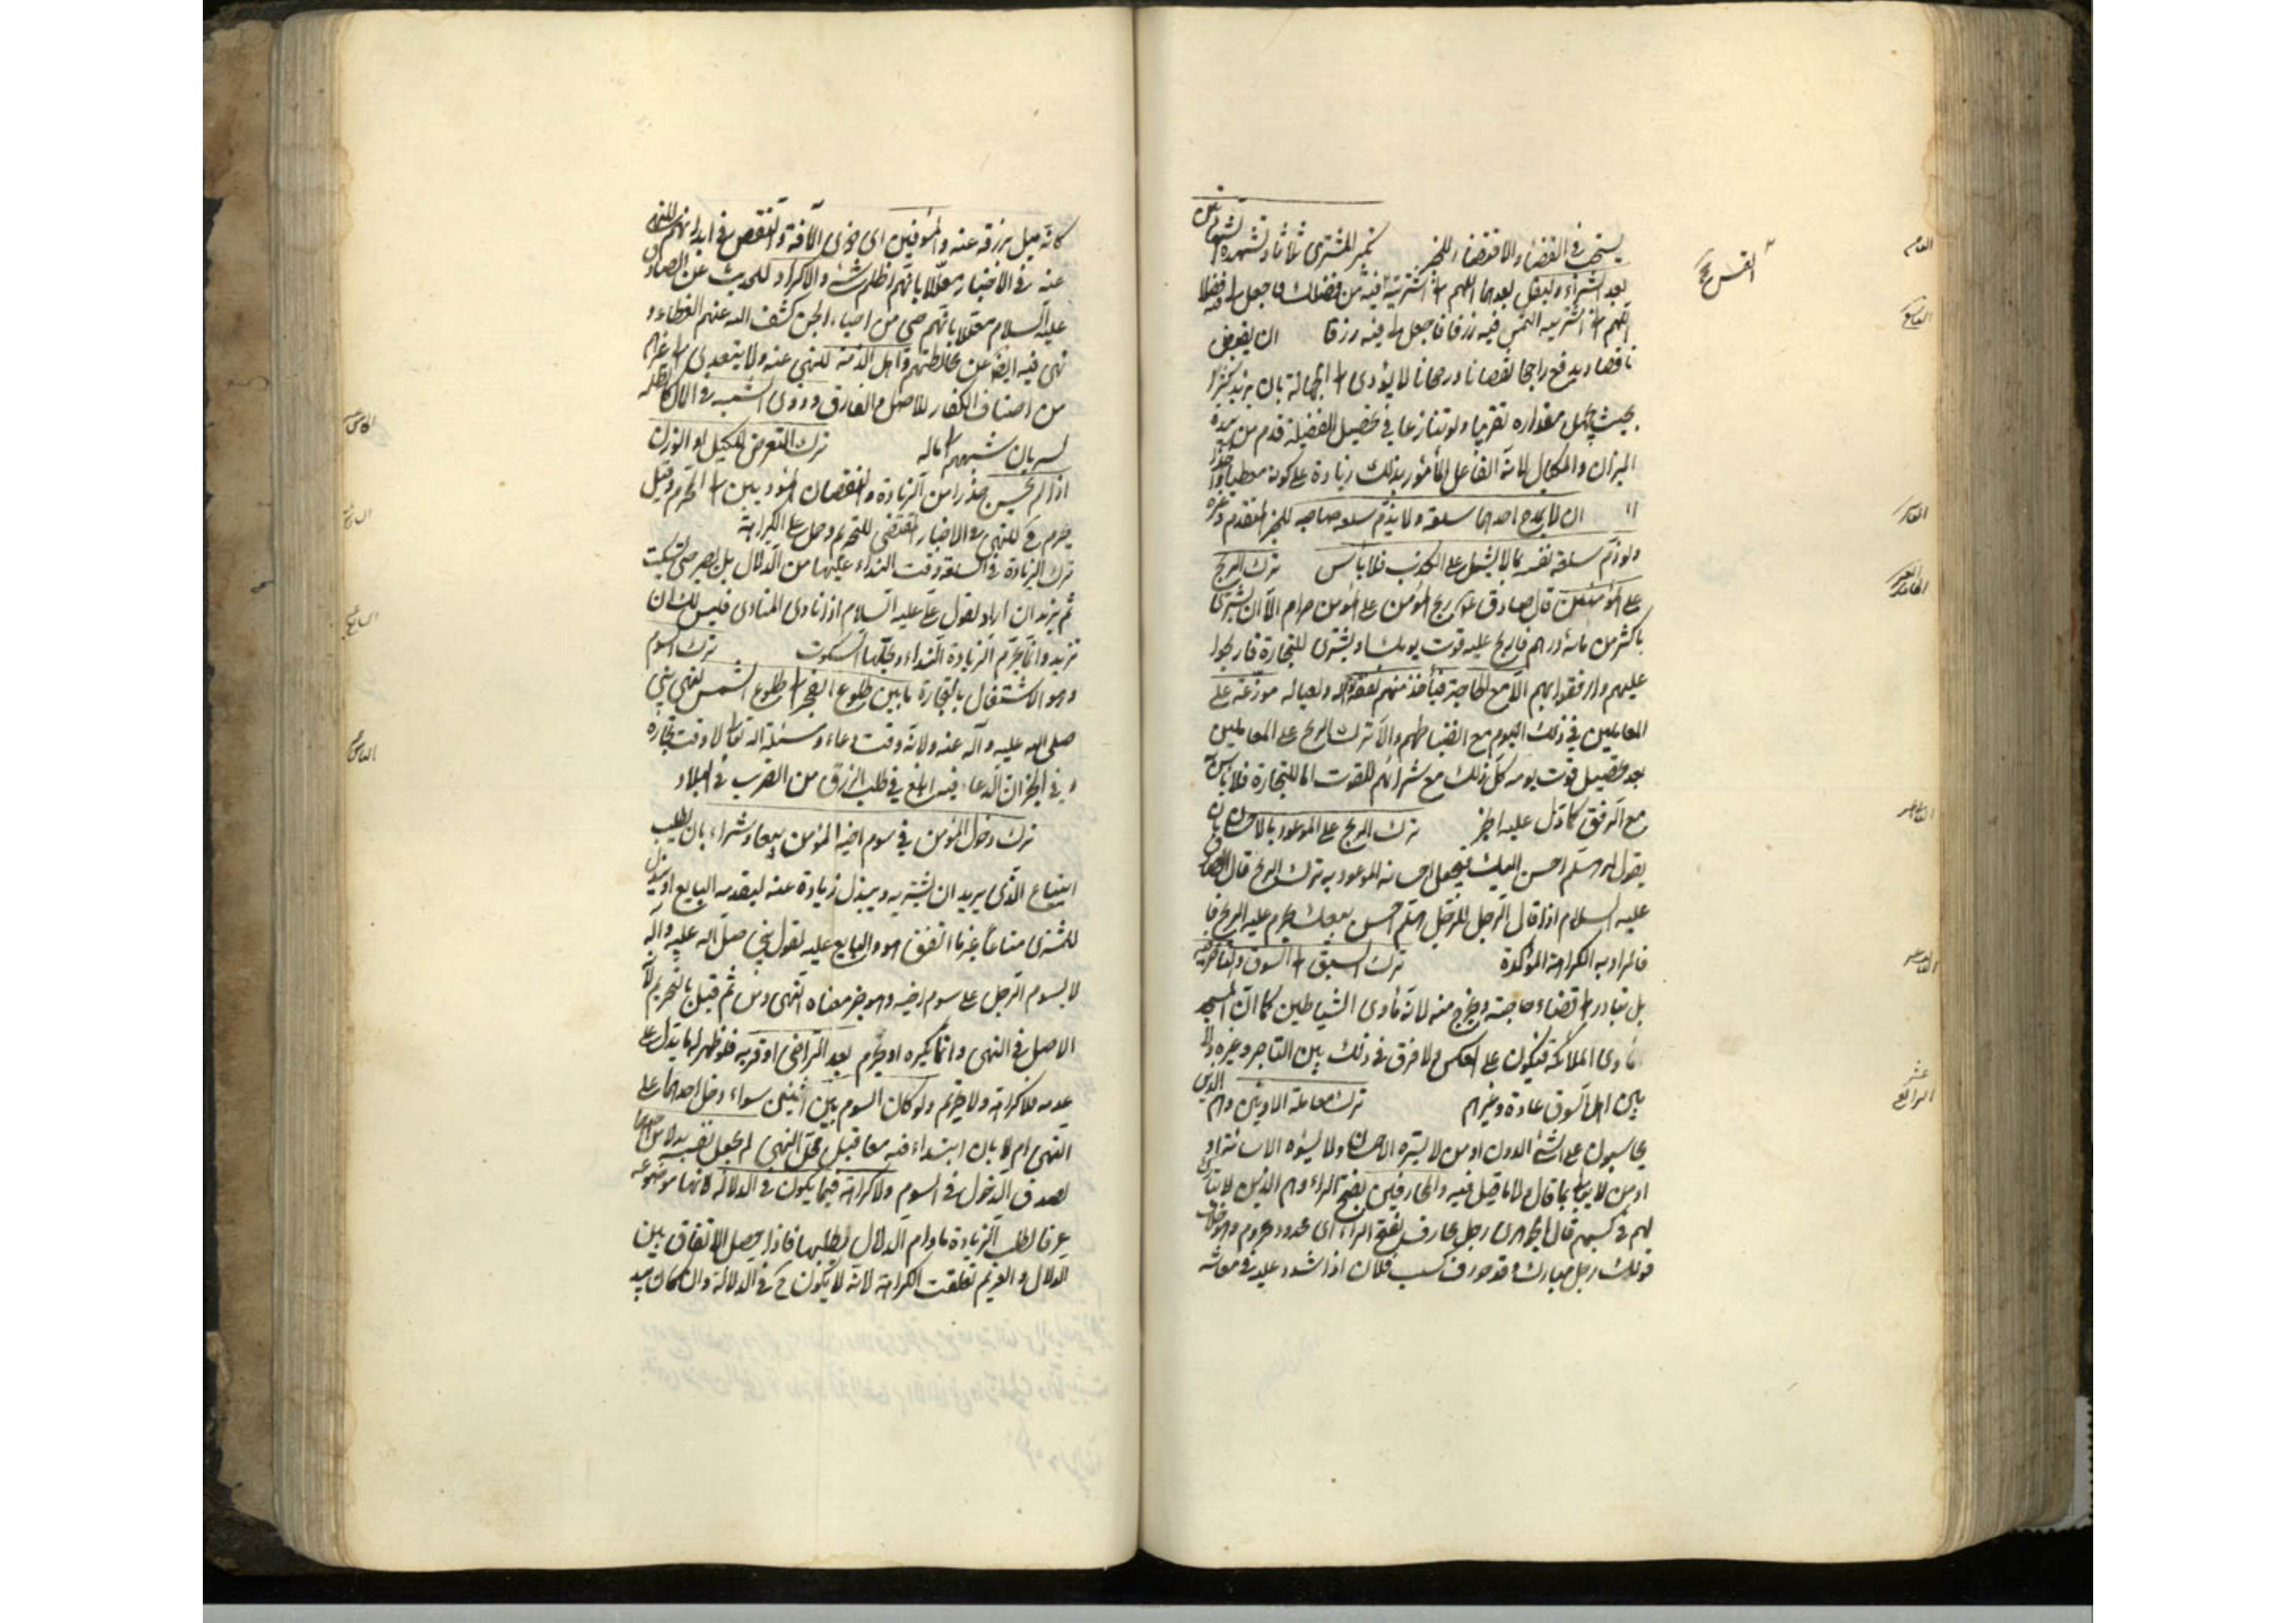 يستحب في القضاء والاقتضاء للخبر تكبير المشترى ثلاثا وتشهده الشهادتين
بعد الشراء وليقل بعدهما اللهم انى اشتريته التمس فيه من فضلك فاجعل لى فيه فضلا
اللهم انى اشتريته التمس فيه رزقا فاجعل لى فيه رزقا ان يقبض
ناقصا ويدفع راجحا نقصانا ورجحانا لا يؤدى الى الجهالة بان يزيد كثيرا
بحيث يجهل مقداره تقريبا ولو تنازعا في تحصيل الفضيلة قدم من بيده
الميزان والمكيال لانه الفاعل المأمور بذلك زيادة على كونه معطيا واخذا
ان لا يمدح احدهما سلعته ولا يذم سلعة صاحبه للخبر المتقدم وغيره
ولو ذم سلعة نفسه بما لا يشتمل على الكذب فلا بأس ترك الربح
على المؤمنين قال صادق ربح المؤمن على المؤمن حرام الا ان يشترى
باكثر من مائة درهم فاربح عليه قوت يومك او يشترى للتجارة فاربحوا
عليهم وارفقوا بهم الا مع الحاجة فيأخذ منهم نفقة له ولعياله موزعة على
المعاملين في ذلك اليوم مع انضباطهم والا ترك الربح على المعاملين
بعد تحصيل قوت يومه كل ذلك مع شرائهم للقوت اما للتجارة فلا بأس
مع الرفق كما دل عليه الخبر ترك الربح على الموعود بالاحسان بان
يقول له هلم احسن اليك فيجعل احسانه الموعود به ترك الربح قال الصادق
عليه السلام اذا قال الرجل للرجل هلم احسن بيعك يحرم عليه الربح
فالمراد به الكراهة المؤكدة ترك السبق الى السوق والتأخر فيه
بل يبادر الى قضاء حاجته ويخرج منه لانه مأوى الشياطين كما ان المسجد
مأوى الملائكة فيكون على العكس ولا فرق في ذلك بين التاجر وغيره ولا
بين اهل السوق عادة وغيرهم ترك معاملة الادنين وهم الذين
يحاسبون على الشئ الدون او من لا يسره الاحسان ولا يسوءه الاساءة او
او من لا يبالى بما قال ولا ما قيل فيه والمحارفين بفتح الراء وهم الذين لا يبارك
لهم في كسبهم قال الجوهرى رجل محارف بفتح الراء اى محدود محروم وهو خلاف
قولك رجل مبارك وقد حورف كسب فلان اذا شدد عليه في معاشه
الثامن
التاسع
العاشر
الحادى عشر
الثانى عشر
الثالث عشر
الرابع عشر
كانه ميل برزقه عنه والمؤفين اى ذوى الآفة والنقص في ابدانهم للنهى
عنه في الاخبار معللا بانهم اظلم شئ والاكراد للحديث عن الصادق
عليه السلام معللا بانهم حى من احياء الجن كشف الله عنهم الغطاء و
نهى فيه ايضا عن مخالطتهم واهل الذمة للنهى عنه ولا يتعدى الى غيرهم
من اصناف الكفار للاصل والفارق وذوى الشبهة في المال كالظلمة
لسريان شبههم الى ماله ترك التعرض للكيل او الوزن
اذا لم يحسن حذرا من الزيادة والنقصان المؤديين الى المحرم وقيل
يحرم ح للنهى في الاخبار المقتضى للتحريم وحمل على الكراهة
ترك الزيادة في السلعة وقت النداء عليها من الدلال بل يصبر حتى يسكت
ثم يزيد ان اراد لقول على عليه السلام اذا نادى المنادى فليس لك ان
تزيد وانما يحرم الزيادة النداء ويحلها السكوت ترك السوم
وهو الاشتغال بالتجارة ما بين طلوع الفجر الى طلوع الشمس لنهى النبى
صلى الله عليه وآله عنه ولانه وقت دعاء ومسئلة لله تعالى لا وقت تجارة
و في الخبر ان الدعاء فيه ابلغ في طلب الرزق من الضرب في البلاد
ترك دخول المؤمن في سوم اخيه المؤمن بيعا وشراء بان يطلب
ابتياع الذى يريد ان يشتريه ويبذل زيادة عنه ليقدمه البايع او يبذل
للمشترى متاعا غير ما اتفق هو والبايع عليه لقول النبى صلى الله عليه وآله
لا يسوم الرجل على سوم اخيه وهو خبر معناه النهى ومن ثم قيل بالتحريم لانه
الاصل في النهى وانما يكره او يحرم بعد التراضى او قربه فلو ظهر له ما يدل على
عدمه فلا كراهة ولا تحريم ولو كان السوم بين اثنين سواء دخل احدهما على
النهى ام لا بان ابتدءا فيه معا قبل محل النهى لم يجعل نفسه بدلا من احدهما
لصدق الدخول في السوم ولا كراهة فيما يكون في الدلالة لانها موضوعة
عرفا لطلب الزيادة ما دام الدلال يطلبها فاذا حصل الاتفاق بين
الدلال والغريم تعلقت الكراهة لانه لا يكون ح في الدلالة وان كان بيد
الخامس
السابع
الثامن